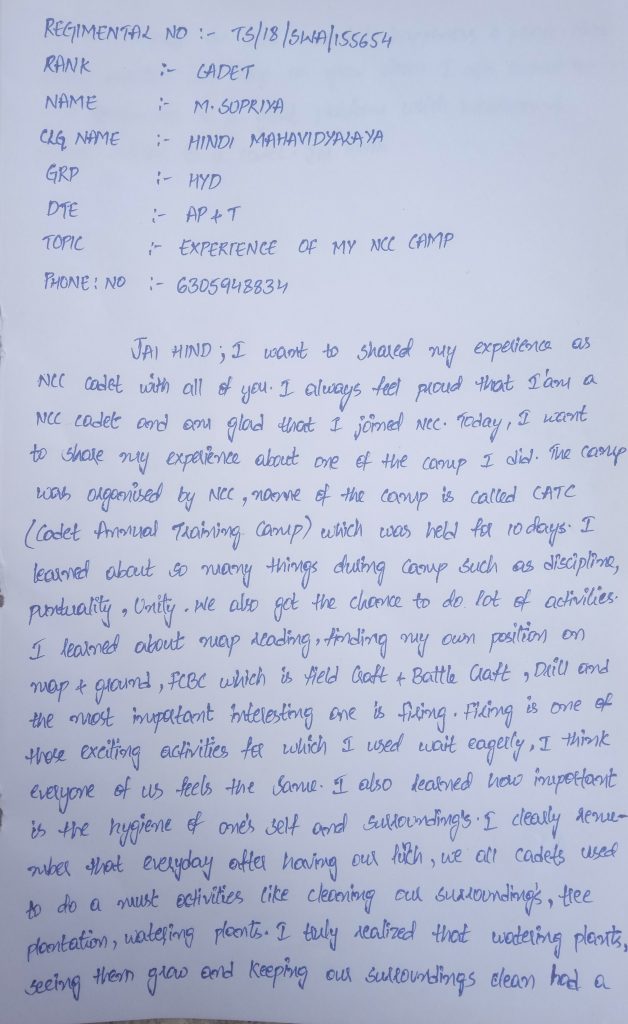 REGIMENTAL NO :- TS/18/SWA/155654
RANK :- CADET
NAME :- M. SOPRIYA
CLG NAME :- HINDI MAHAVIDYALAYA
GRP :- HYD
DTE :- AP & T
TOPIC :- EXPERIENCE OF MY NCC CAMP
PHONE: NO :- 6305948834
JAI HIND ; I want to shared my experience as
NCC cadet with all of you. I always feel proud that I'am a
NCC cadet and am glad that I joined NCC. Today, I want
to share my experience about one of the camp I did. The camp
was organised by NCC, name of the camp is called CATC
(Cadet Annual Training Camp) which was held for 10 days. I
learned about so many things during camp such as discipline,
puntuality, Unity. We also got the chance to do lot of activities.
I learned about map reading, finding my own position on
map & ground, FCBC which is field Craft & Battle Craft, Drill and
the most impotant interesting one is firing. Firing is one of
those exciting activities for which I used wait eagerly, I think
everyone of us feels the same. I also learned how important
is the hygiene of one's self and surrounding's. I clearly reme-
mber that everyday after having our , we all cadets used
to do a must activities like cleaning our surrounding's, tree
plantation, watering plants. I truly realized that watering plants,
seeing them grow and keeping our surroundings clean had a